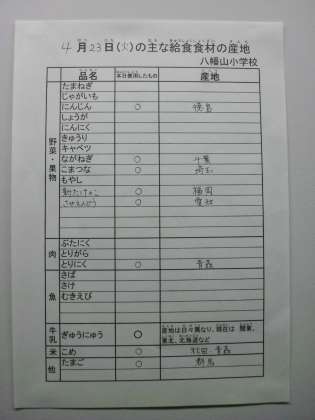 4月23日(火)の主な給食食材の産地
八幡山小学校
品名 本日使用したもの 産地
野菜・果物
たまねぎ
じゃがいも
にんじん ○ 徳島
しょうが
にんにく
きゅうり
キャベツ
ながねぎ ○ 千葉
こまつな ○ 埼玉
もやし
新たけのこ ○ 福岡
さやえんどう ○ 愛知
肉
ぶたにく
とりがら
とりにく ○ 青森
魚
さば
さけ
むきえび
牛乳 ぎゅうにゅう ○ 産地は日々異なり、現在は 関東、東北、北海道など
米 こめ ○ 秋田・青森
他 たまご ○ 群馬